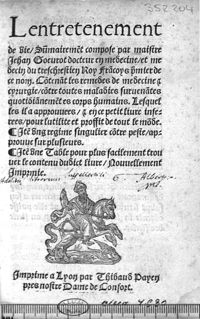 352204
Lentretenement
de vie/ Sūmairemēt compose par maistre
Jehan Goeurot docteur en medecine/ et me
decin du treschrestien Roy Frācoys p̄mier de
ce nom. Cōtenāt les remedes de medecine &
cyrurgie/ cōtre toutes maladies survenātes
quotidiānemēt es corps humains. Lesquel
les il a approuvees/ & en ce petit livre inse-
rees/ pour lutilite et proffit de tout le mōde.
¶ Itē ūng regime singulier cōtre peste/ ap-
prouve sur plusieurs.
¶ Itē ūne Table pour plus facilement trou
ver le contenu dudict livre/ Nouvellement
Imprime.
Imprime a Lyon par Thibaud Payen
pres nostre Dame de Confort.